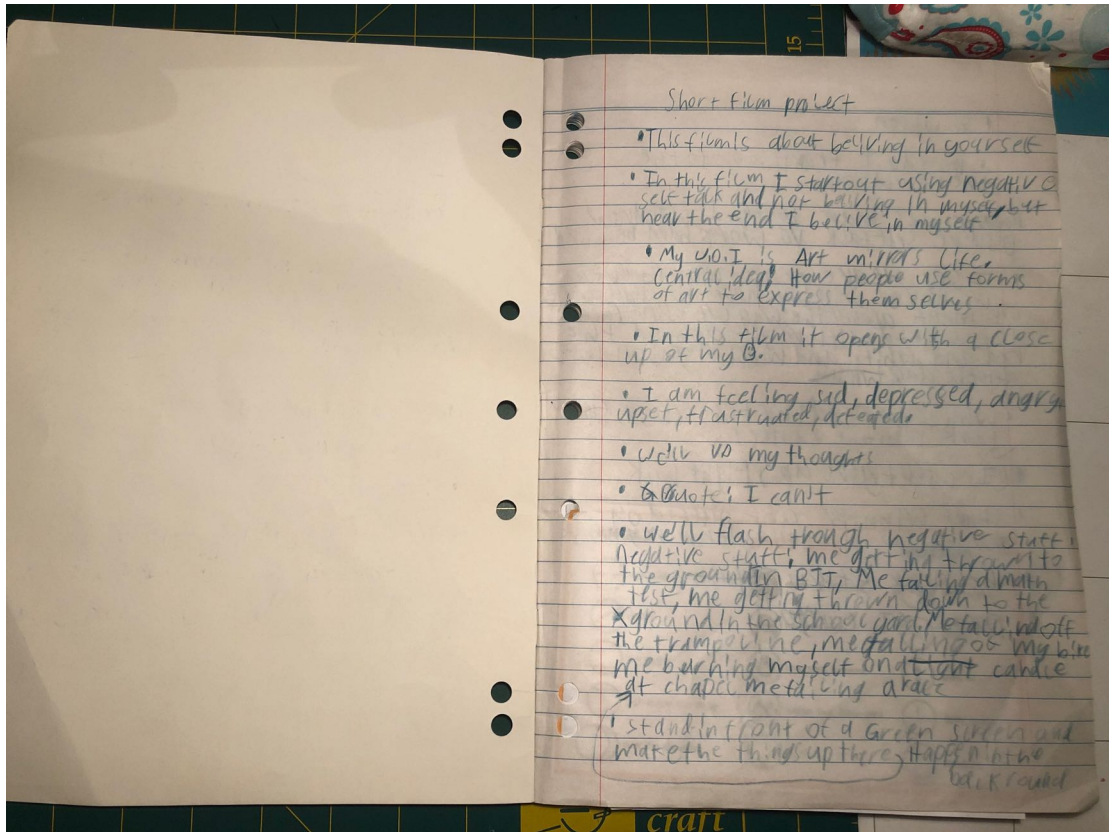 15
Short film project
• This film is about beliving in yourself
• In this film, I start out using negative
self talk and not beliving in myself, but
near the end I belive in myself
• My U.O.I is Art mirrors Life.
Central idea: How people use forms
of art to express them selves
• In this film it opens with a close
up of my
• I am feeling sad, depressed, angry,
upset, frustruated, defeated.
• we'll VO my thoughts
• Quote: I can't
• we'll flash trough negative stuff
negative stuff: me getting thrown to
the ground In BJJ, Me failing a math
test, me getting thrown down to the
ground In the school yard, Me falling off
the trampoline, me falling of my bike
me burning myself on candle
at chapel me failing a race
I stand in front of a Green screen and
make the things up there Happen in the
backround
craft